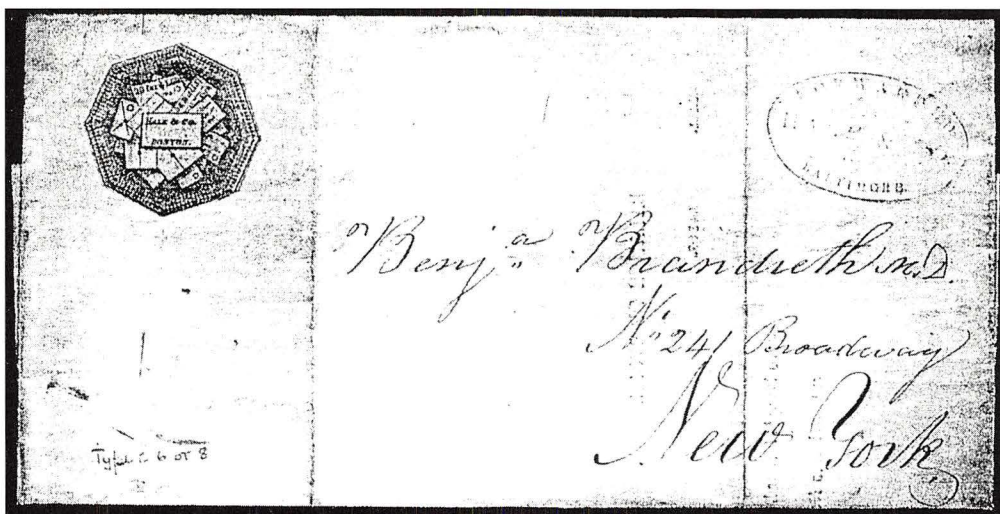 HALE & Co.
BOSTON.
BALTIMORE
Benj.a Brandreth M.D.
No 241 Broadway
New York
Type 6 or 8